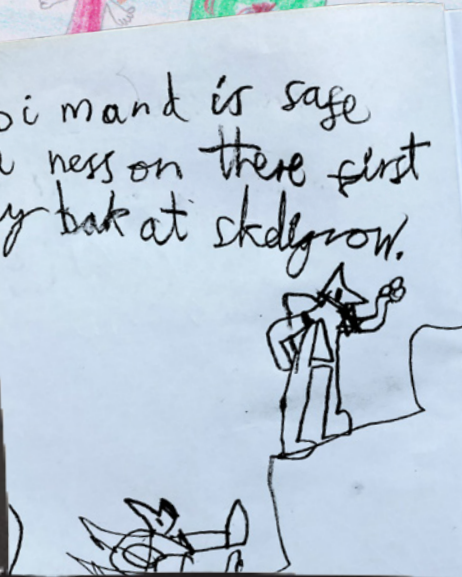 oi mand is safe
ness on there first
y bak at skelgrow.